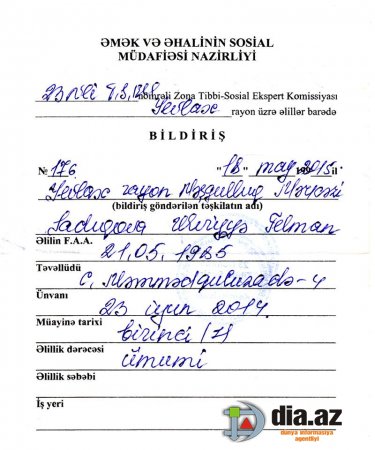 ƏMƏK VƏ ƏHALİNİN SOSİAL
MÜDAFİƏSİ NAZİRLİYİ
23 nömrəli Zona Tibbi-Sosial Ekspert Komissiyası
Yevlax rayon üzrə əlillər barədə
BİLDİRİŞ
№ 176 "18" may 2015 il
Yevlax rayon Məşğulluq Mərkəzi
(bildiriş göndərilən təşkilatın adı)
Sadıqova Ülviyyə Telman
Əlilin F.A.A.
21.05.1985
Təvəllüdü
C. Məmmədquluzadə-4
Ünvanı
23 iyun 2014
Müayinə tarixi
birinci /I/
Əlillik dərəcəsi
ümumi
Əlillik səbəbi
İş yeri
dia.az
dünya informasiya
agentliyi